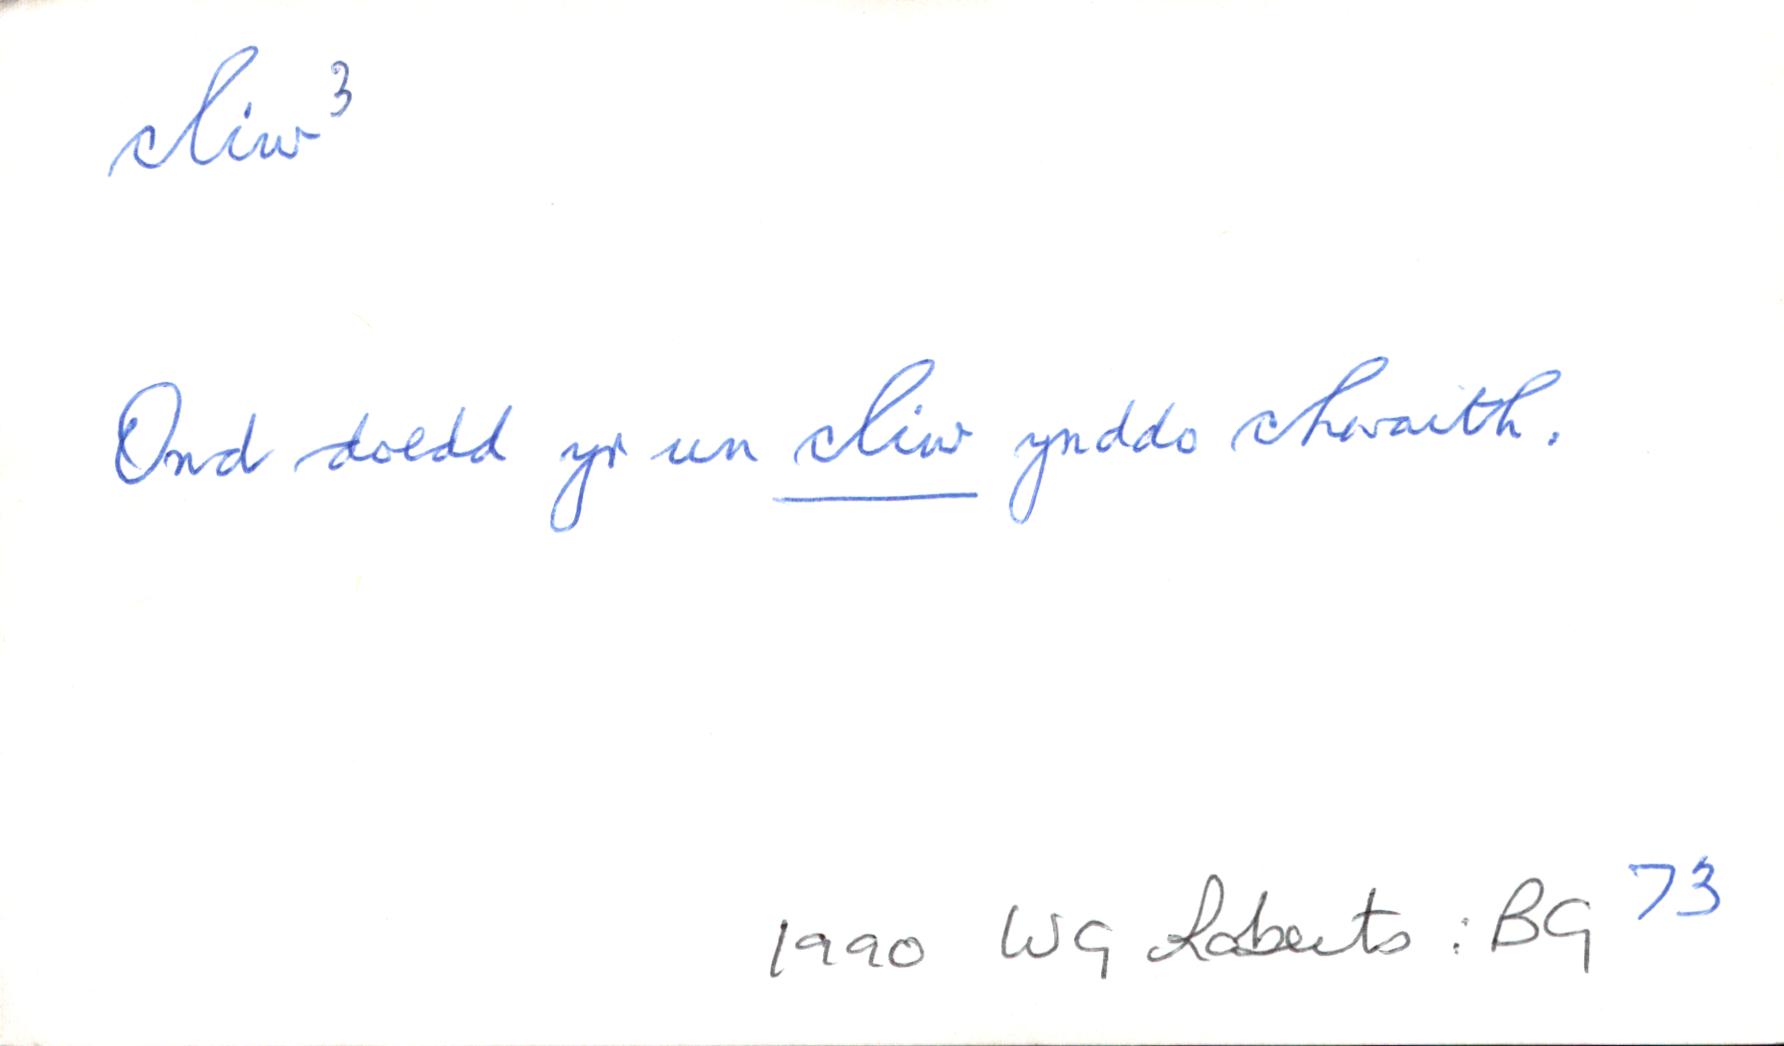 cliw³
Ond doedd yr un cliw ynddo chwaith.
1990 WG Roberts : BG 73